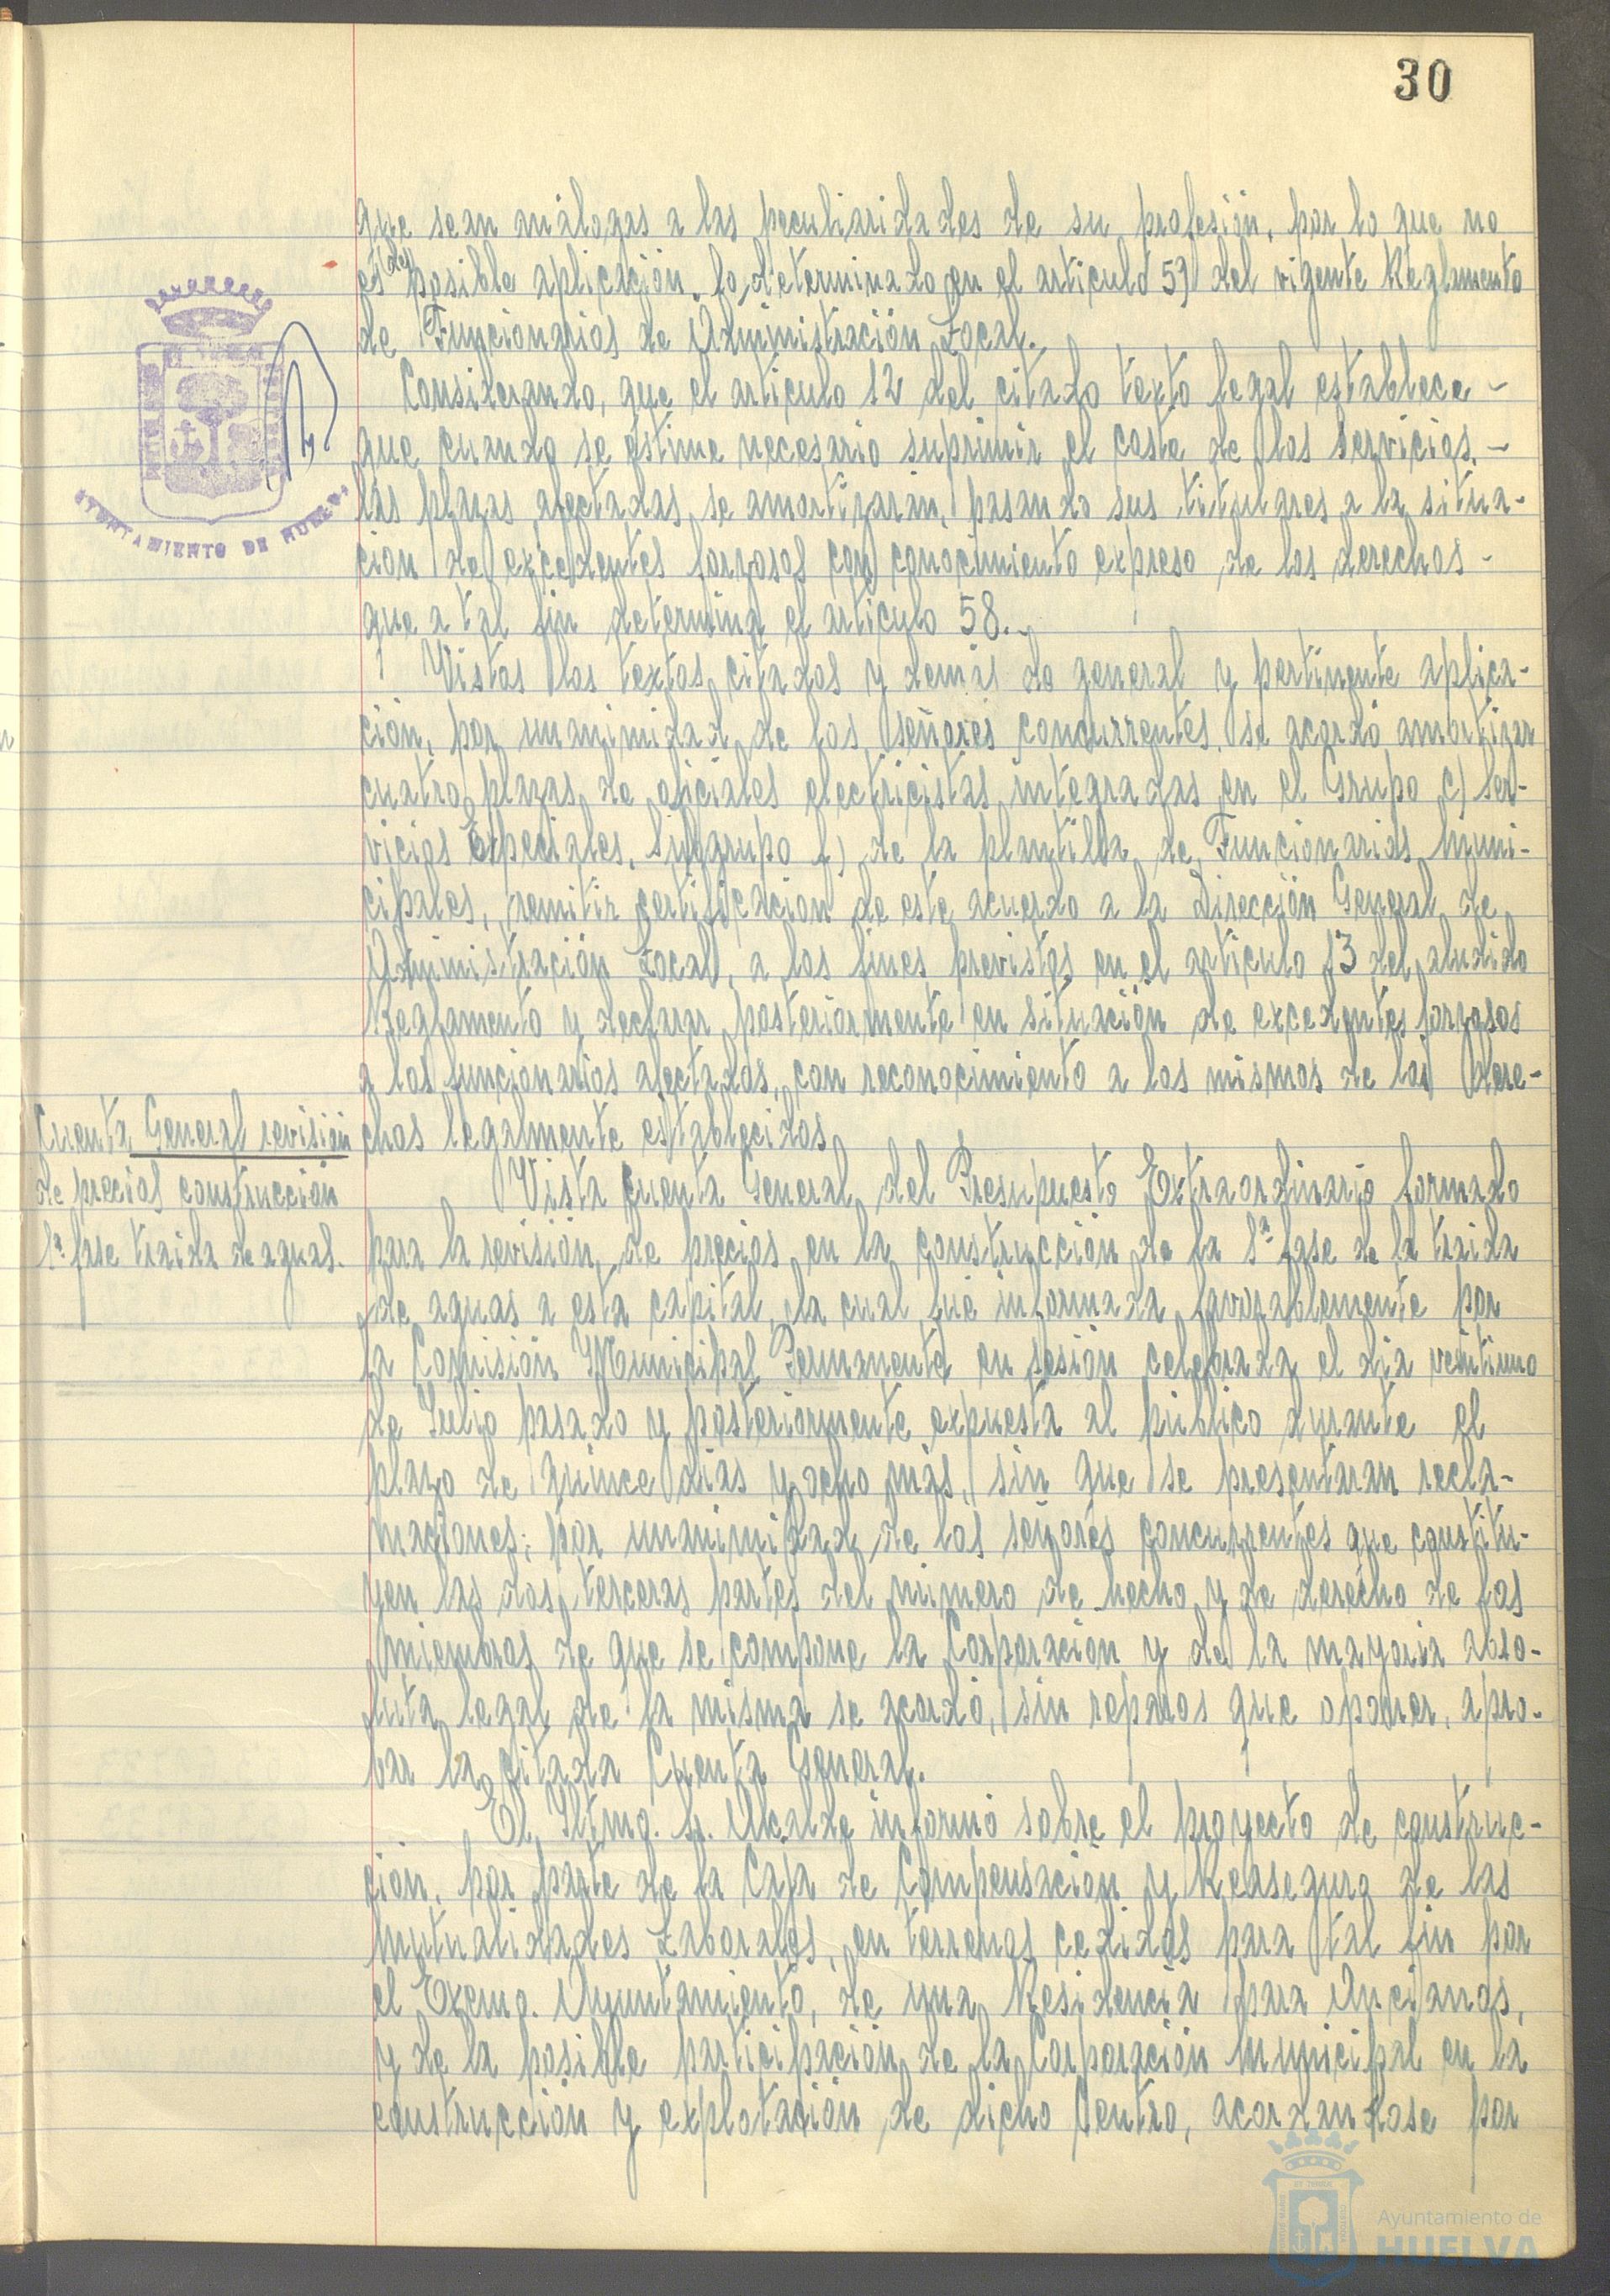 30
que sean análogas a las peculiaridades de su profesión, por lo que no
es de posible aplicación lo determinado en el articulo 59 del vigente Reglamento
de Funcionarios de Administración Local.
Considerando, que el articulo 12 del citado texto legal establece -
que cuando se estime necesario suprimir el coste de los servicios, -
las plazas afectadas se amortizarán, pasando sus titulares a la situa-
ción de excedentes forzosos con conocimiento expreso de los derechos -
que a tal fin determina el articulo 58.-
Vistos los textos citados y demás de general y pertinente aplica-
ción, por unanimidad de los señores concurrentes, se acordó amortizar
cuatro plazas de oficiales electricistas integradas en el Grupo c) Ser-
vicios Especiales, Subgrupo f) de la plantilla de Funcionarios Muni-
cipales, remitir certificación de este acuerdo a la Dirección General de
Administración Local, a los fines previstos en el articulo 13 del aludido
Reglamento y declarar posteriormente en situación de excedentes forzosos
a los funcionarios afectados, con reconocimiento a los mismos de los dere-
chos legalmente establecidos.
Cuenta General revisión
de precios construcción
1ª fase traida de aguas.
Vista Cuenta General del Presupuesto Extraordinario formado
para la revisión de precios en la construcción de la 1ª fase de la traida
de aguas a esta capital, la cual fué informada favorablemente por
la Comisión Municipal Permanente en sesión celebrada el dia veintiuno
de Julio pasado y posteriormente expuesta al público durante el
plazo de quince dias y ocho más, sin que se presentaran recla-
maciones; por unanimidad de los señores concurrentes que constitu-
yen las dos terceras partes del número de hecho y de derecho de los
miembros de que se compone la Corporación y de la mayoria abso-
luta legal de la misma se acordó, sin reparos que oponer, apro-
bar la citada Cuenta General.
El Iltmo. Sr. Alcalde informó sobre el proyecto de construc-
ción, por parte de la Caja de Compensación y Reaseguro de las
Mutualidades Laborales, en terrenos cedidos para tal fin por
el Excmo. Ayuntamiento, de una Residencia para Ancianos,
y de la posible participación de la Corporación Municipal en la
construcción y explotación de dicho Centro, acordandose por
AYUNTAMIENTO DE HUELVA
Ayuntamiento de
HUELVA